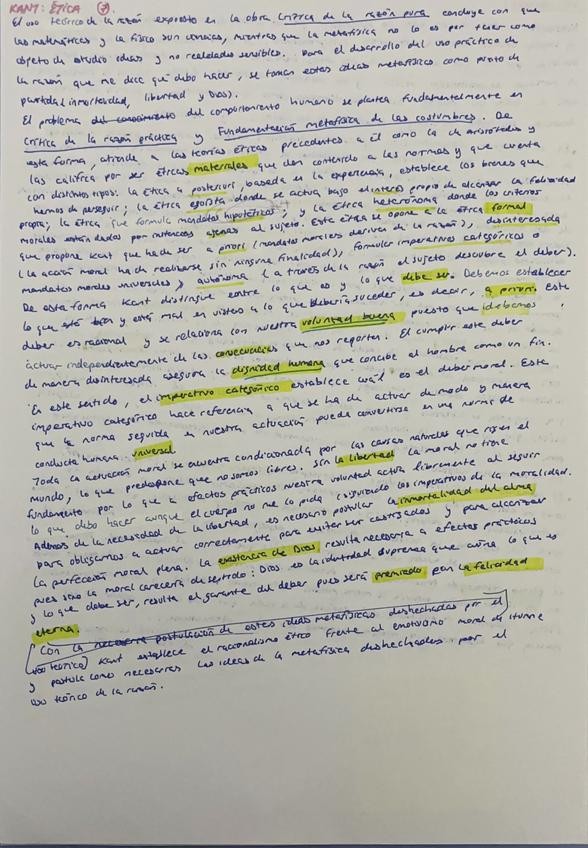 KANT: ÉTICA 7.
El uso teórico de la razón expuesto en la obra Crítica de la razón pura concluye con que
las matemáticas y la física son ciencias, mientras que la metafísica no lo es por tener como
objeto de estudio ideas y no realidades sensibles. Para el desarrollo del uso práctico de
la razón que me dice qué debo hacer, se toman estas ideas metafísicas como punto de
partida (inmortalidad, libertad y Dios).
El problema del conocimiento del comportamiento humano se plantea fundamentalmente en
Crítica de la razón práctica y Fundamentación metafísica de las costumbres. De
esta forma, atiende a las teorías éticas precedentes a él como la de Aristóteles y
las califica por ser éticas materiales que dan contenido a las normas y que cuenta
con distintos tipos: la ética a posteriori, basada en la experiencia, establece los bienes que
hemos de perseguir; la ética egoísta donde se actúa bajo el interés propio de alcanzar la felicidad
propia; la ética que formula mandatos hipotéticos; y la ética heterónoma donde los criterios
morales están dados por instancias ajenas al sujeto. Esta ética se opone a la ética formal
que propone Kant que ha de ser a priori (mandatos morales derivan de la razón), desinteresada
(la acción moral ha de realizarse sin ninguna finalidad), formular imperativos categóricos o
mandatos morales universales y autónoma (a través de la razón el sujeto descubre el deber).
De esta forma Kant distingue entre lo que es y lo que debe ser. Debemos establecer
lo que está bien y está mal en vistas a lo que debería suceder, es decir, a priori. Este
deber es racional y se relaciona con nuestra voluntad buena puesto que debemos
activar independientemente de las consecuencias que nos reporten. El cumplir este deber
de manera desinteresada, asegura la dignidad humana que concibe al hombre como un fin.
En este sentido, el imperativo categórico establece cuál es el deber moral. Este
imperativo categórico hace referencia a que se ha de actuar de modo y manera
que la norma seguida en nuestra actuación puede convertirse en una norma de
conducta humana universal
Toda la actuación moral se encuentra condicionada por las causas naturales que rigen el
mundo, lo que predispone que no somos libres. Sin la libertad la moral no tiene
fundamento por lo que a efectos prácticos nuestra voluntad actúa libremente al seguir
lo que debo hacer aunque el cuerpo no me lo pida siguiendo los imperativos de la moralidad.
Además de la necesidad de la libertad, es necesario postular la inmortalidad del alma
para obligarnos a actuar correctamente para evitar ser castigados y para alcanzar
la perfección moral plena. La existencia de Dios resulta necesaria a efectos prácticos
pues sino la moral carecería de sentido: Dios es la identidad suprema que aúna lo que es
y lo que debe ser, resulta el garante del deber pues será premiado con la felicidad
eterna.
Con la necesaria postulación de estas ideas metafísicas deshechadas por el
uso teórico, Kant establece el racionalismo ético frente al emotivismo moral de Hume
y postula como necesarias las ideas de la metafísica deshechadas por el
uso teórico de la razón.